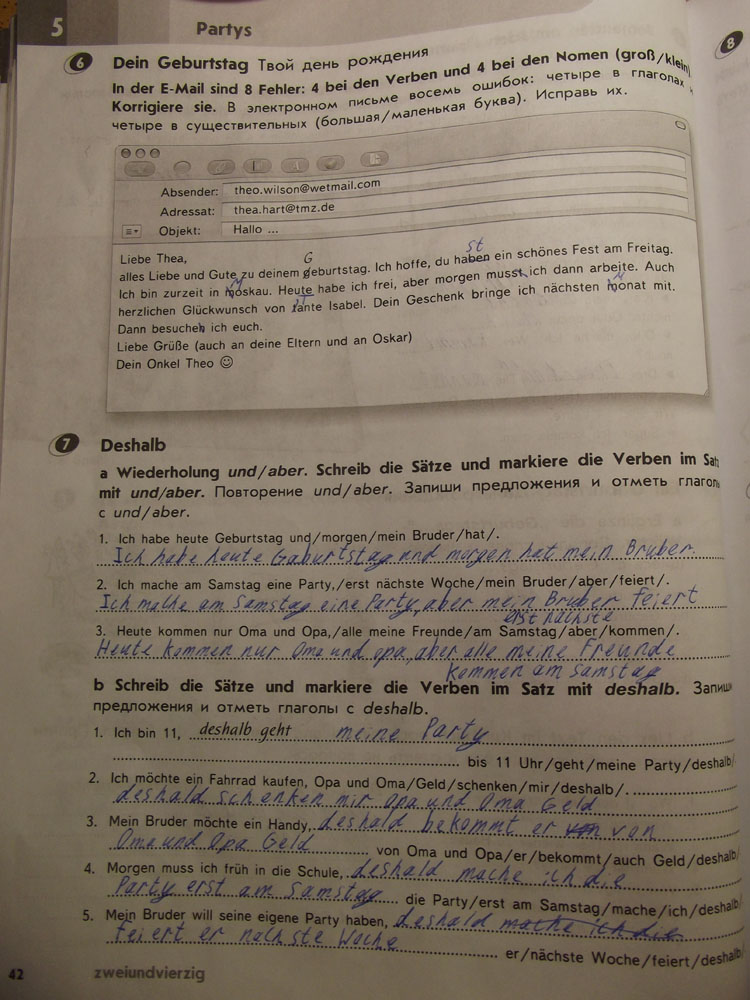 5 Partys
8
6 Dein Geburtstag Твой день рождения
In der E-Mail sind 8 Fehler: 4 bei den Verben und 4 bei den Nomen (groß/klein)
Korrigiere sie. В электронном письме восемь ошибок: четыре в глаголах и
четыре в существительных (большая/маленькая буква). Исправь их.
Absender: theo.wilson@wetmail.com
Adressat: thea.hart@tmz.de
Objekt: Hallo ...
Liebe Thea,
G st
alles Liebe und Gute zu deinem geburtstag. Ich hoffe, du haben ein schönes Fest am Freitag.
M M
Ich bin zurzeit in moskau. Heute habe ich frei, aber morgen musst ich dann arbeite. Auch
herzlichen Glückwunsch von tante Isabel. Dein Geschenk bringe ich nächsten monat mit.
Dann besuchen ich euch.
Liebe Grüße (auch an deine Eltern und an Oskar)
Dein Onkel Theo ☺
7 Deshalb
a Wiederholung und/aber. Schreib die Sätze und markiere die Verben im Satz
mit und/aber. Повторение und/aber. Запиши предложения и отметь глаголы
с und/aber.
1. Ich habe heute Geburtstag und/morgen/mein Bruder/hat/.
Ich habe heute Gaburtstag und morgen hat mein Bruber.
2. Ich mache am Samstag eine Party,/erst nächste Woche/mein Bruder/aber/feiert/.
Ich mache am Samstag eine Party, aber mein Bruber feiert
erst nächste
3. Heute kommen nur Oma und Opa,/alle meine Freunde/am Samstag/aber/kommen/.
Heute kommen nur Oma und opa, aber alle meine Freunde
kommen am samstag
b Schreib die Sätze und markiere die Verben im Satz mit deshalb. Запиши
предложения и отметь глаголы с deshalb.
1. Ich bin 11, deshalb geht meine Party
bis 11 Uhr/geht/meine Party/deshalb/
2. Ich möchte ein Fahrrad kaufen, Opa und Oma/Geld/schenken/mir/deshalb/.
deshald schenken mir Opa und Oma Geld
3. Mein Bruder möchte ein Handy, deshald bekommt er von von
Oma und Opa Geld von Oma und Opa/er/bekommt/auch Geld/deshalb/
4. Morgen muss ich früh in die Schule, deshald mache ich die
Party erst am Samstag die Party/erst am Samstag/mache/ich/deshalb/
5. Mein Bruder will seine eigene Party haben, deshald mache ich die
feiert er nächste Woche er/nächste Woche/feiert/deshalb/
42 zweiundvierzig